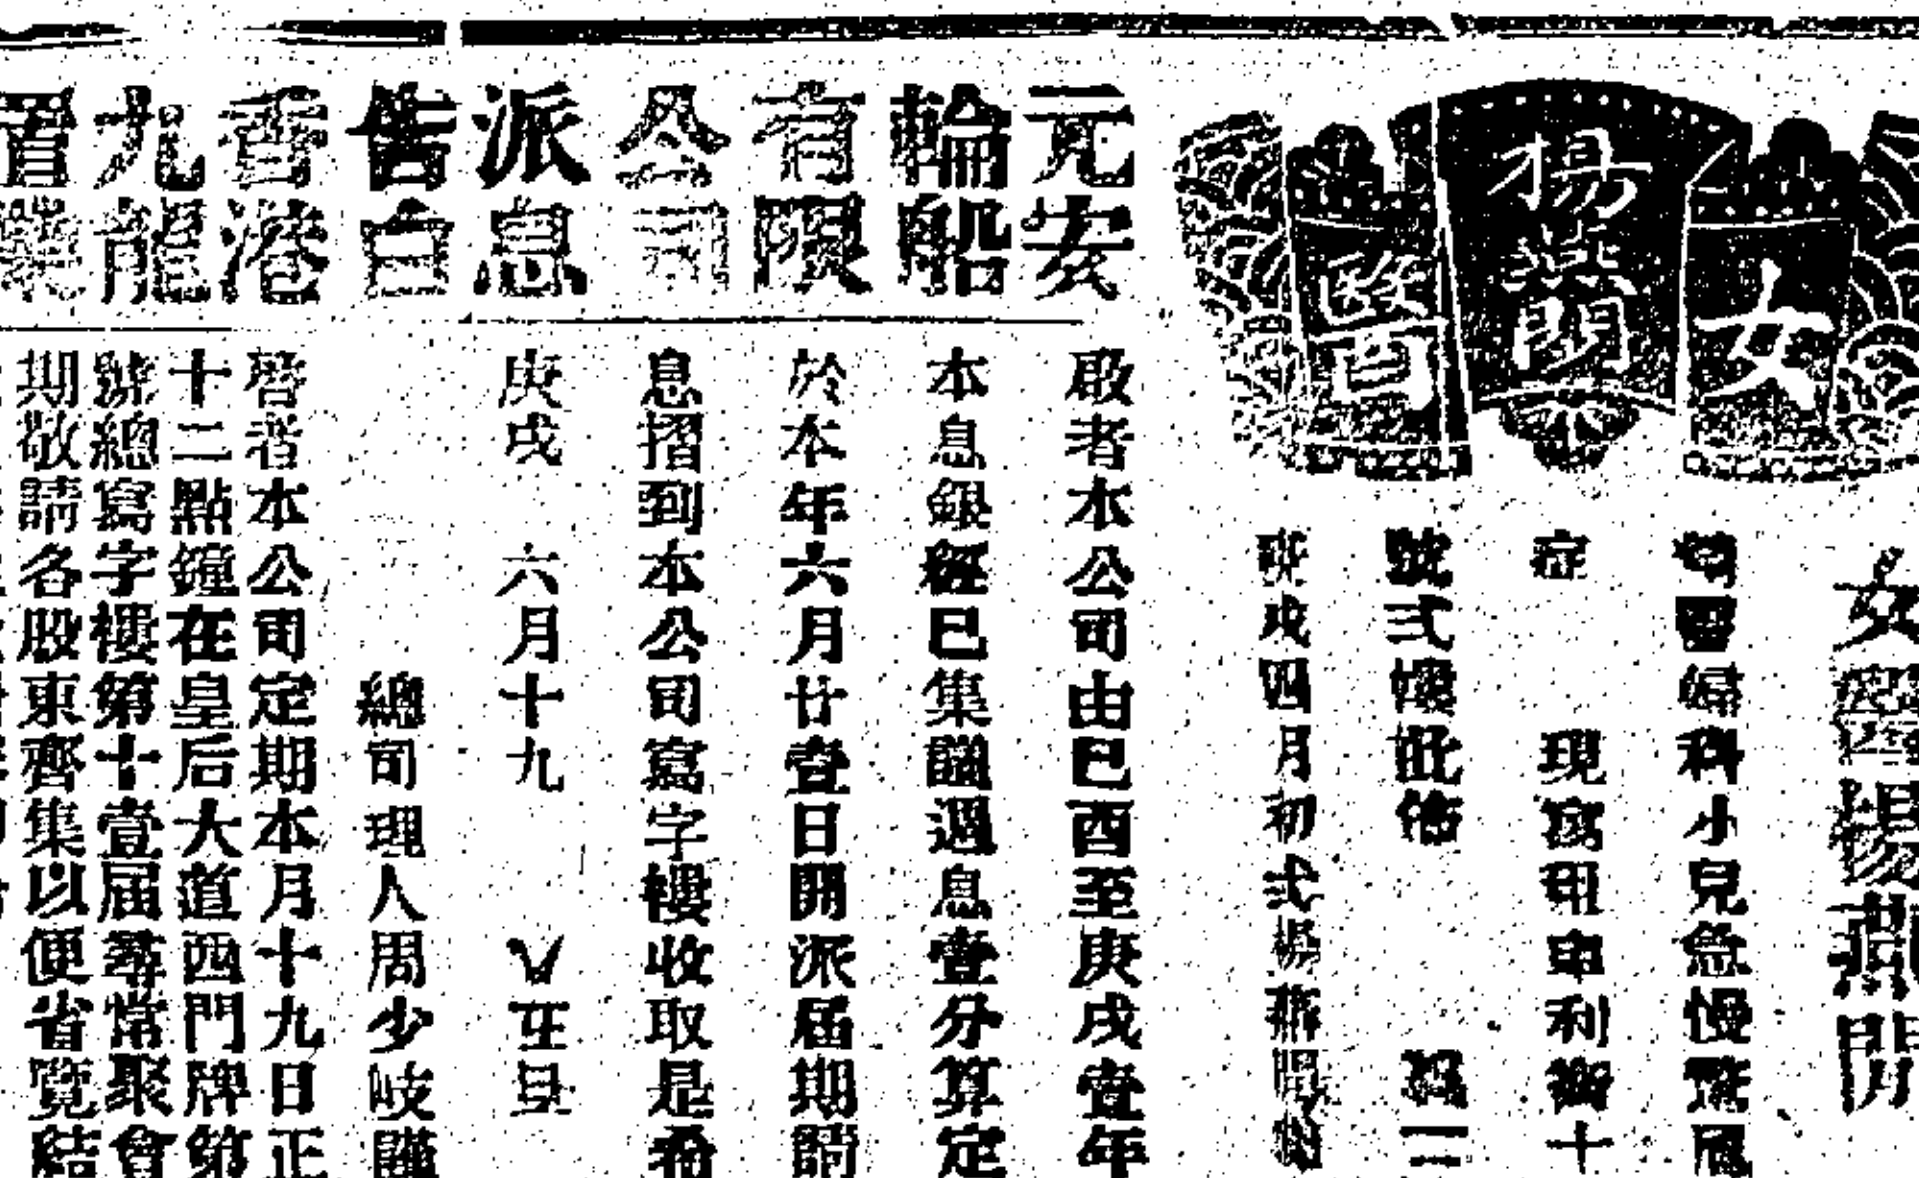 女醫
楊燕閒
女醫楊燕閒
婦科小兒急慢驚風
症
現寓
利街十
號弍樓
戌四月初弍
元安
輪船
有限
公司
派息
告白
啟者本公司由巳酉至庚戌壹年
本息銀經巳集議週息壹分算定
於本年六月廿壹日開派届期請
息摺到本公司寫字樓收取是希
庚戌 六月十九
總司理人周少岐謹
香港
九龍
置業
啓者本公司定期本月十九日正
十二點鐘在皇后大道西門牌第
號總寫字樓第十壹届尋常聚會
期敬請各股東齊集以便省覽結